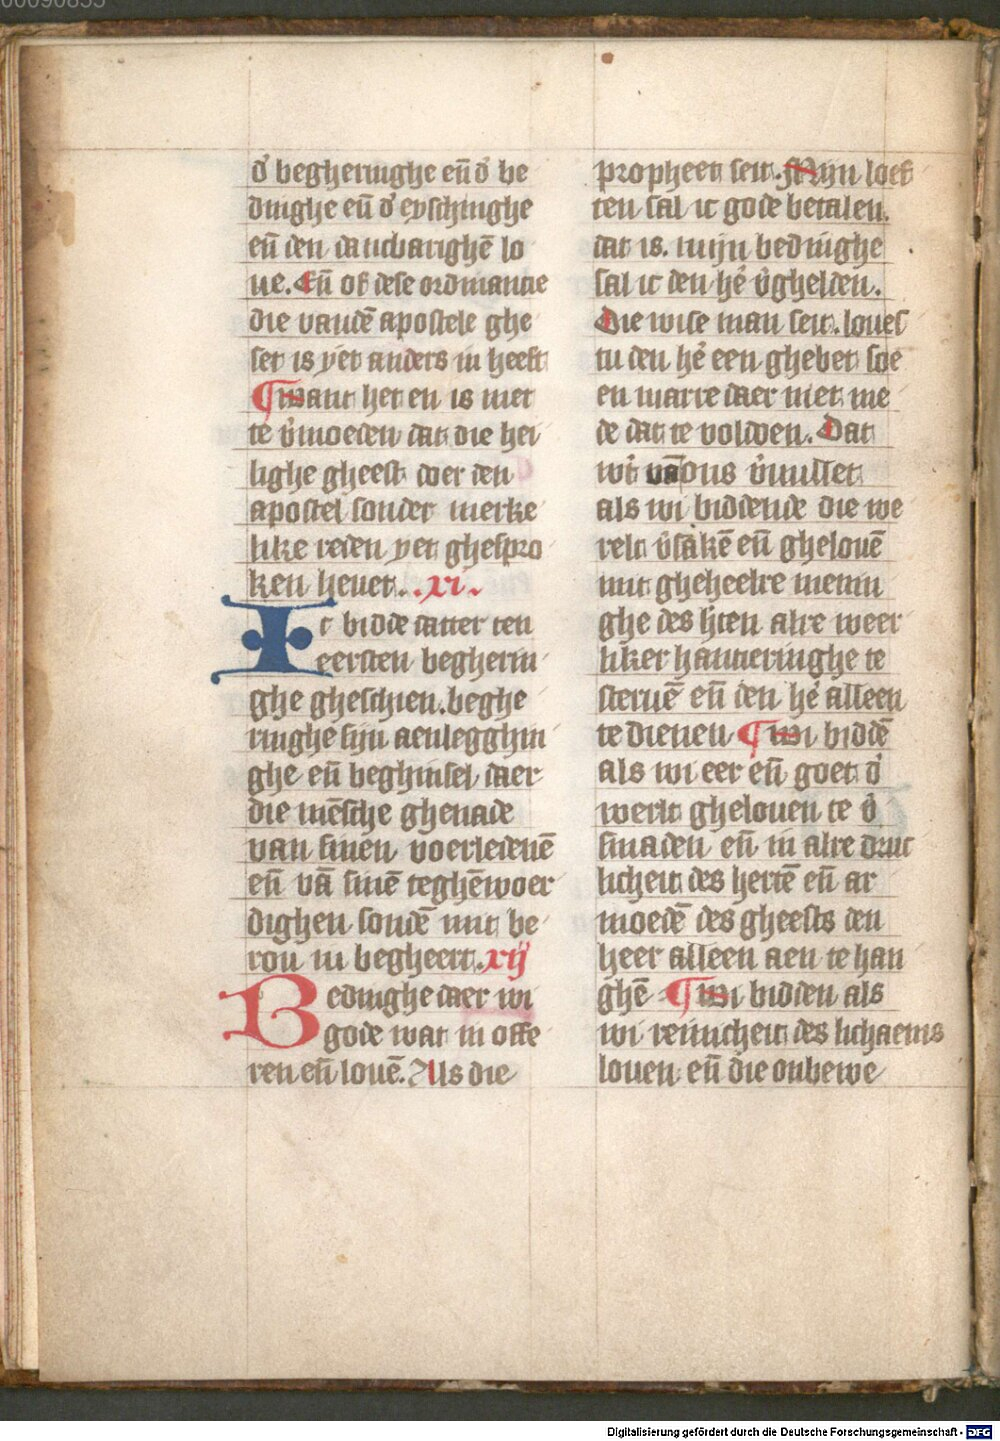 00090855
d' begheringhe eñ d' be
dinghe eñ d' eyschinghe
eñ den dancbarighē lo
ue. Eñ of dese ordinancie
die vandē apostele ghe
set is yet anders in heeft
¶ Want het en is niet
te v'moeden dat die hei
lighe gheest doer den
apostel sonder merke
like reden yet ghespro
ken heuet. .xi.
Ic bidde datter ten
eersten begherin
ghe gheschien. beghe
ringhe sijn aenlegghin
ghe eñ beghinsel daer
die mēsche ghenade
van sinen voerledenē
eñ vā sinē teghēwoer
dighen sondē mit be
rou in begheert. xij
Bedinghe daer wi
gode wat in offe
ren eñ louē. Als die
propheet seit. Mijn loef
ten sal ic gode betalen.
dat is. mijn bedinghe
sal ic den he' v'ghelden.
Die wise man seit. loues
tu den he' een ghebet soe
en marre daer niet me
de dat te voldoen. Dat
wt' vā ons v'uullet
als wi biddende die we
relt v'sakē eñ ghelouē
mit gheheelre menin
ghe des hten alre weer
liker hanteringhe te
steruē eñ den he' alleen
te dienen ¶ Wi biddē
als wi eer eñ goet d'
werlt ghelouen te v'
smaden eñ in alre druc
licheit des hertē eñ ar
moedē des gheests den
heer alleen aen te han
ghē ¶ Wi bidden als
wi reinicheit des lichaems
louen eñ die onbewe
Digitalisierung gefördert durch die Deutsche Forschungsgemeinschaft - DFG